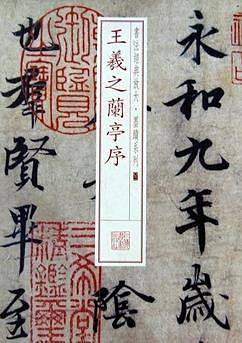 永和九年歲
陰
書法經典放大・墨蹟系列
王羲之蘭亭序
也群賢畢至